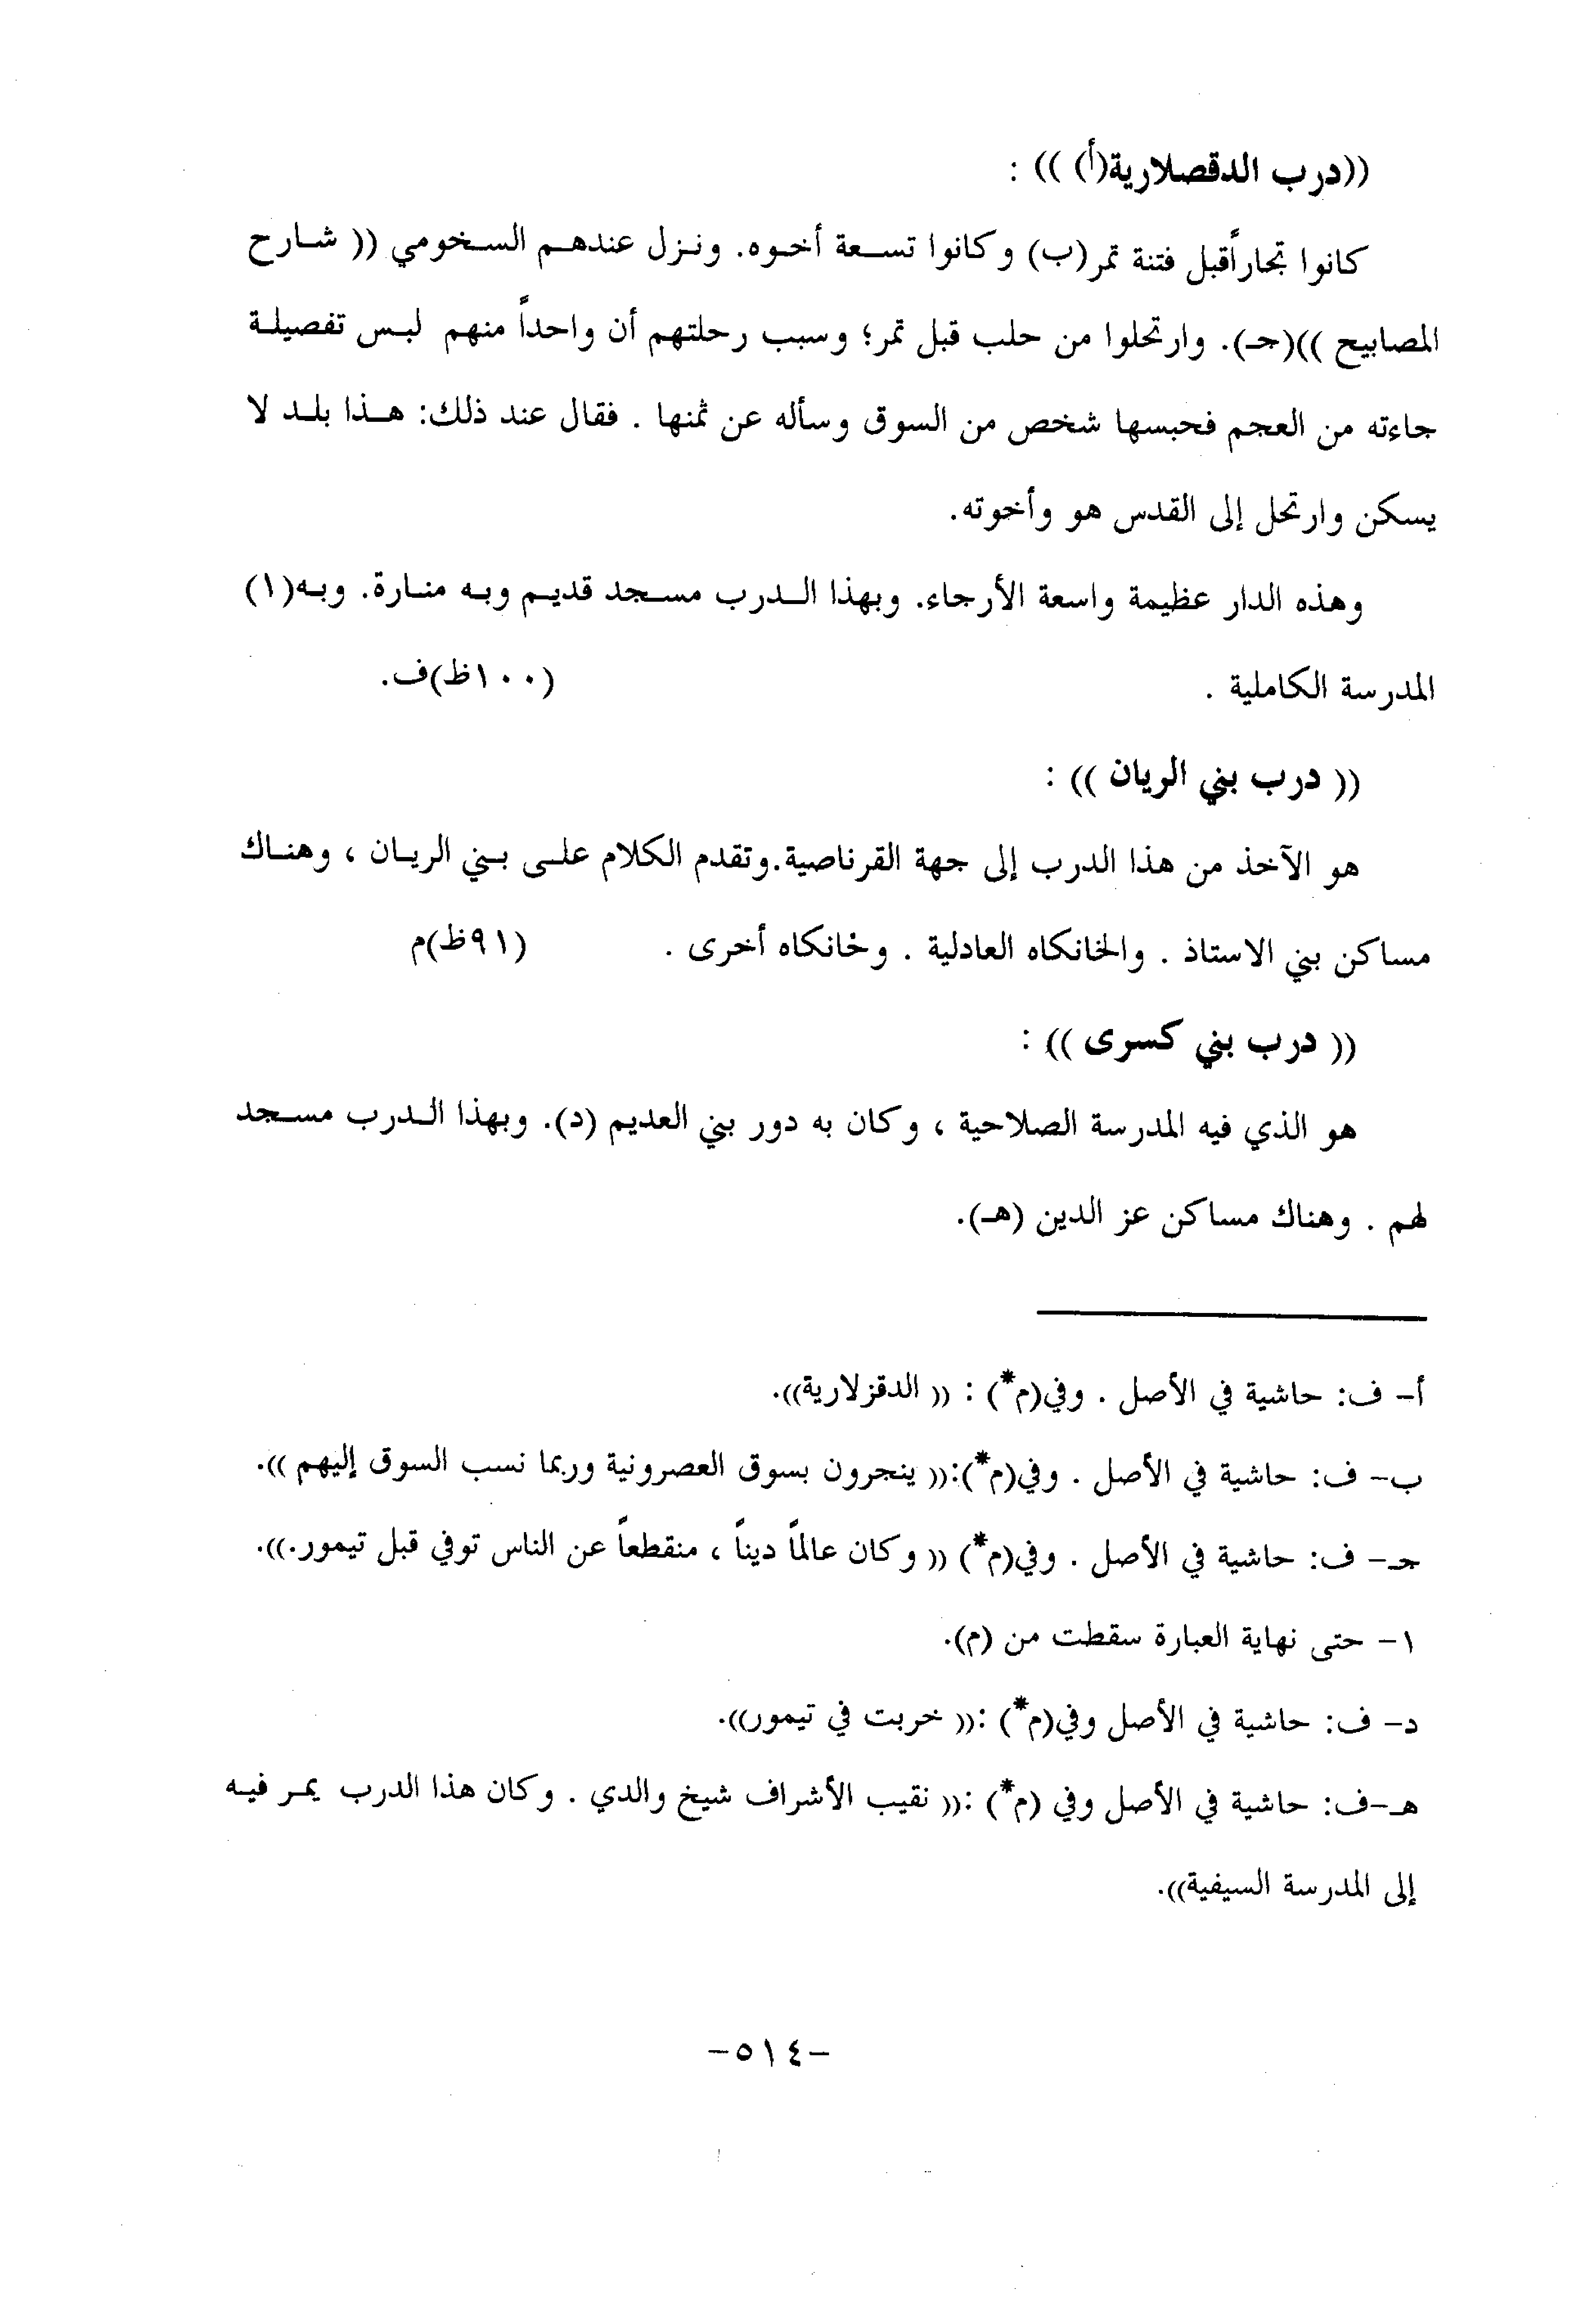 ((درب الدقصلارية(أ) )) :
كانوا تجاراًقبل فتنة تمر(ب) وكانوا تسعة أخوه. ونزل عندهم السخومي (( شارح
المصابيح ))(جـ). وارتحلوا من حلب قبل تمر؛ وسبب رحلتهم أن واحداً منهم لبس تفصيلة
جاءته من العجم فحبسها شخص من السوق وسأله عن ثمنها . فقال عند ذلك: هذا بلد لا
يسكن وارتحل إلى القدس هو وأخوته.
وهذه الدار عظيمة واسعة الأرجاء. وبهذا الدرب مسجد قديم وبه منارة. وبه(١)
المدرسة الكاملية . (١٠٠ظ)ف.
(( درب بني الريان )) :
هو الآخذ من هذا الدرب إلى جهة القرناصية.وتقدم الكلام على بني الريان ، وهناك
مساكن بني الاستاذ . والخانكاه العادلية . وخانكاه أخرى . (٩١ظ)م
(( درب بني كسرى )) :
هو الذي فيه المدرسة الصلاحية ، وكان به دور بني العديم (د). وبهذا الدرب مسجد
لهم . وهناك مساكن عز الدين (هـ).
أ- ف: حاشية في الأصل . وفي(م*) : (( الدقزلارية)).
ب- ف: حاشية في الأصل . وفي(م*):(( ينجرون بسوق العصرونية وربما نسب السوق إليهم )).
جـ- ف: حاشية في الأصل . وفي(م*) (( وكان عالماً ديناً ، منقطعاً عن الناس توفي قبل تيمور.)).
١- حتى نهاية العبارة سقطت من (م).
د- ف: حاشية في الأصل وفي(م*) :(( خربت في تيمور)).
هـ-ف: حاشية في الأصل وفي (م*) :(( نقيب الأشراف شيخ والدي . وكان هذا الدرب يمر فيه
إلى المدرسة السيفية)).
-٥١٤-